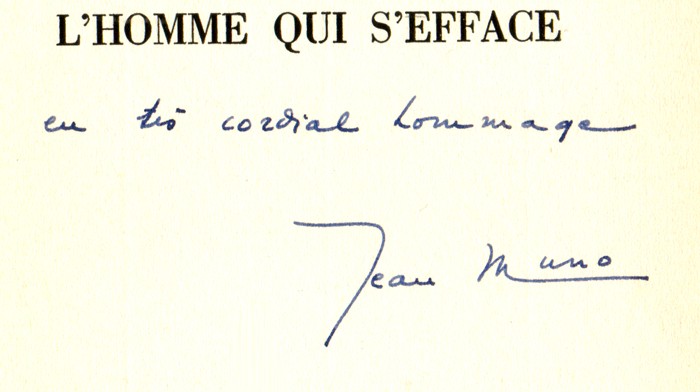 L'HOMME QUI S'EFFACE
en très cordial hommage
Jean Muno